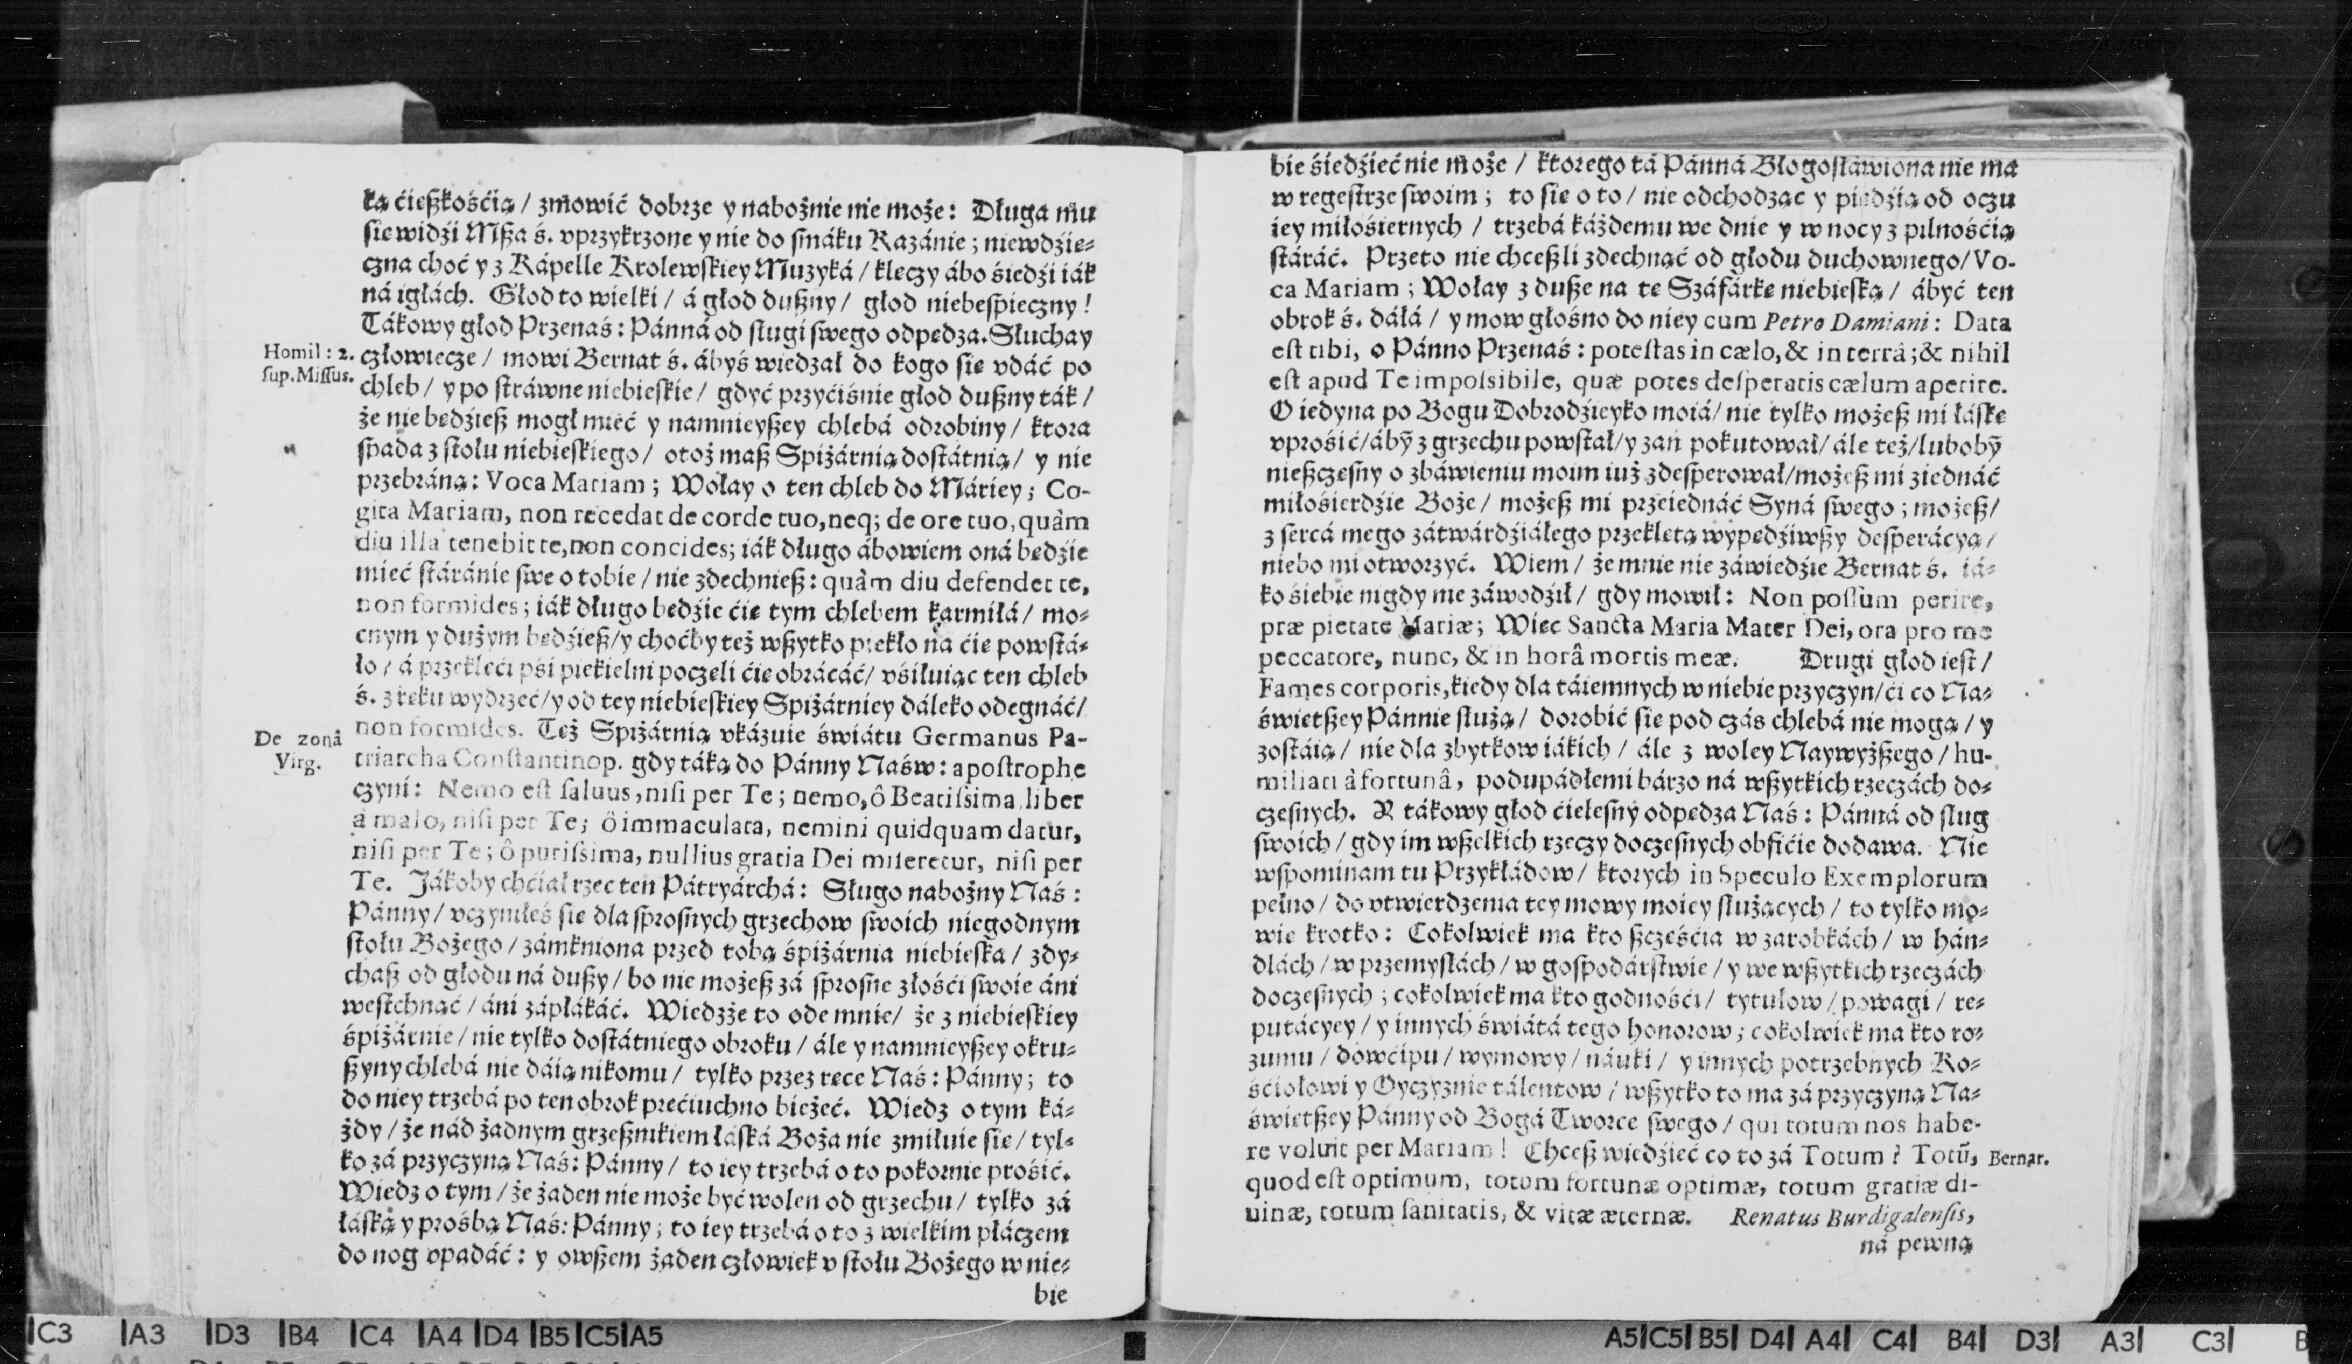 ką ćięßkośćią / zmowić dobrze y nabożnie nie może: Długa mu
sie widźi Mßa ś. vprzykrzone y nie do smáku Kazánie; niewdźię-
czna choć y z Kápelle Krolewskiey Muzyká / klęczy ábo śiedźi iák
ná igłách. Głod to wielki / á głod dußny / głod niebespieczny!
Tákowy głod Przenaś: Pánná od sługi swego odpędza. Słuchay
Homil: 2. sup. Missus.
człowiecze / mowi Bernat ś. ábyś wiedzał do kogo się vdáć po
chleb / y po stráwne niebieskie / gdyć przyćiśnie głod dußny ták /
że nie będźieß mogł mieć y namnieyßey chlebá odrobiny / ktora
spada z stołu niebieskiego / otoż maß Spiżárnią dostátnią / y nie
przebráną: Voca Mariam; Wołay o ten chleb do Máriey; Co-
gita Mariam, non recedat de corde tuo, neq; de ore tuo, quàm
diu illa tenebit te, non concides; iák długo ábowiem oná będźie
mieć stáránie swe o tobie / nie zdechnieß: quàm diu defendet te,
non formides; iák długo będźie ćię tym chlebem karmiłá / mo-
cnym y dużym będźieß / y choćby też wßytko piekło na ćię powstá-
ło / á przeklęći pśi piekielni poczęli ćię obrácáć / vśiłuiąc ten chleb
ś. z ręku wydrzeć / y od tey niebieskiey Spiżárniey dáleko odegnáć /
non formides. Też Spiżárnią vkázuie świátu Germanus Pa-
De zonâ Virg.
triarcha Constantinop. gdy táką do Pánny Naśw: apostrophe
czyni: Nemo est saluus, nisi per Te; nemo, ô Beatissima liber
a malo, nisi per Te; ô immaculata, nemini quidquam datur,
nisi per Te; ô purissima, nullius gratia Dei miseretur, nisi per
Te. Jákoby chćiał rzec ten Pátryárchá: Sługo nabożny Naś:
Pánny / vczyniłeś się dla sprosnych grzechow swoich niegodnym
stołu Bożego / zámkniona przed tobą śpiżárnia niebieska / zdy-
chaß od głodu ná dußy / bo nie możeß zá sprosne złośći swoie áni
westchnąć / áni zápłákáć. Wiedzże to ode mnie / że z niebieskiey
śpiżárnie / nie tylko dostátniego obroku / ále y namnieyßey okru-
ßyny chlebá nie dáią nikomu / tylko przez ręce Naś: Pánny; to
do niey trzebá po ten obrok prećiuchno bieżeć. Wiedz o tym ká-
żdy / że nád żadnym grzeßnikiem łáská Boża nie zmiłuie się / tyl-
ko zá przyczyną Naś: Pánny / to iey trzebá o to pokornie prośić.
Wiedz o tym / że żaden nie może być wolen od grzechu / tylko zá
łáską y prośbą Naś: Pánny; to iey trzebá o to z wielkim płáczem
do nog vpadáć: y owßem żaden człowiek v stołu Bożego w nie-
bie
bie śiedźieć nie może / ktorego tá Pánná Błogosłáwiona nie ma
w regestrze swoim; to się o to / nie odchodząc y piędźią od oczu
iey miłośiernych / trzebá káżdemu we dnie y w nocy z pilnośćią
stáráć. Przeto nie chceßli zdechnąć od głodu duchownego / Vo-
ca Mariam; Wołay z duße na tę Száfárkę niebieską / ábyć ten
obrok ś. dáłá / y mow głośno do niey cum Petro Damiani: Data
est tibi, o Pánno Przenaś: potestas in cælo, & in terrâ; & nihil
est apud Te impossibile, quæ potes desperatis cælum aperire.
O iedyna po Bogu Dobrodźieyko moiá / nie tylko możeß mi łáskę
vprośić / ábym̃ z grzechu powstał / y zań pokutował / ále też / lubobym̃
nießczęsny o zbáwieniu moim iuż zdesperował / możeß mi ziednáć
miłośierdźie Boże / możeß mi przeiednáć Syná swego; możeß /
z sercá mego zátwárdźiáłego przeklętą wypędźiwßy desperácyą /
niebo mi otworzyć. Wiem / że mnie nie záwiedźie Bernat ś. iá-
ko śiebie nigdy nie záwodźił / gdy mowił: Non possum perire,
præ pietate Mariæ; Więc Sancta Maria Mater Dei, ora pro me
peccatore, nunc, & in horâ mortis meæ. Drugi głod iest /
Fames corporis, kiedy dla táiemnych w niebie przyczyn / ći co Na-
świętßey Pánnie służą / dorobić się pod czás chlebá nie mogą / y
zostáią / nie dla zbytkow iákich / ále z woley Naywyżßego / hu-
miliati à fortunâ, podupádłemi bárzo ná wßytkich rzeczách do-
czesnych. A tákowy głod ćielesny odpędza Naś: Pánná od sług
swoich / gdy im wßelkich rzeczy doczesnych obfićie dodawa. Nie
wspominam tu Przykłádow / ktorych in Speculo Exemplorum
pełno / do vtwierdzenia tey mowy moiey służących / to tylko mo-
wię krotko: Cokolwiek ma kto ßczęśćia w zarobkách / w hán-
dlách / w przemysłách / w gospodárstwie / y we wßytkich rzeczách
doczesnych; cokolwiek ma kto godnośći / tytułow / powagi / re-
putácyey / y innych świátá tego honorow; cokolwiek ma kto ro-
zumu / dowćipu / wymowy / náuki / y innych potrzebnych Ko-
śćiołowi y Oyczyznie tálentow / wßytko to ma zá przyczyną Na-
świętßey Pánny od Bogá Tworce swego / qui totum nos habe-
re voluit per Mariam! Chceß wiedźieć co to zá Totum? Totũ,
Bernar.
quod est optimum, totum fortunæ optimæ, totum gratiæ di-
uinæ, totum sanitatis, & vitæ æternæ. Renatus Burdigalensis,
ná pewną
C3 A3 D3 B4 C4 A4 D4 B5 C5 A5
A5 C5 B5 D4 A4 C4 B4 D3 A3 C3 B